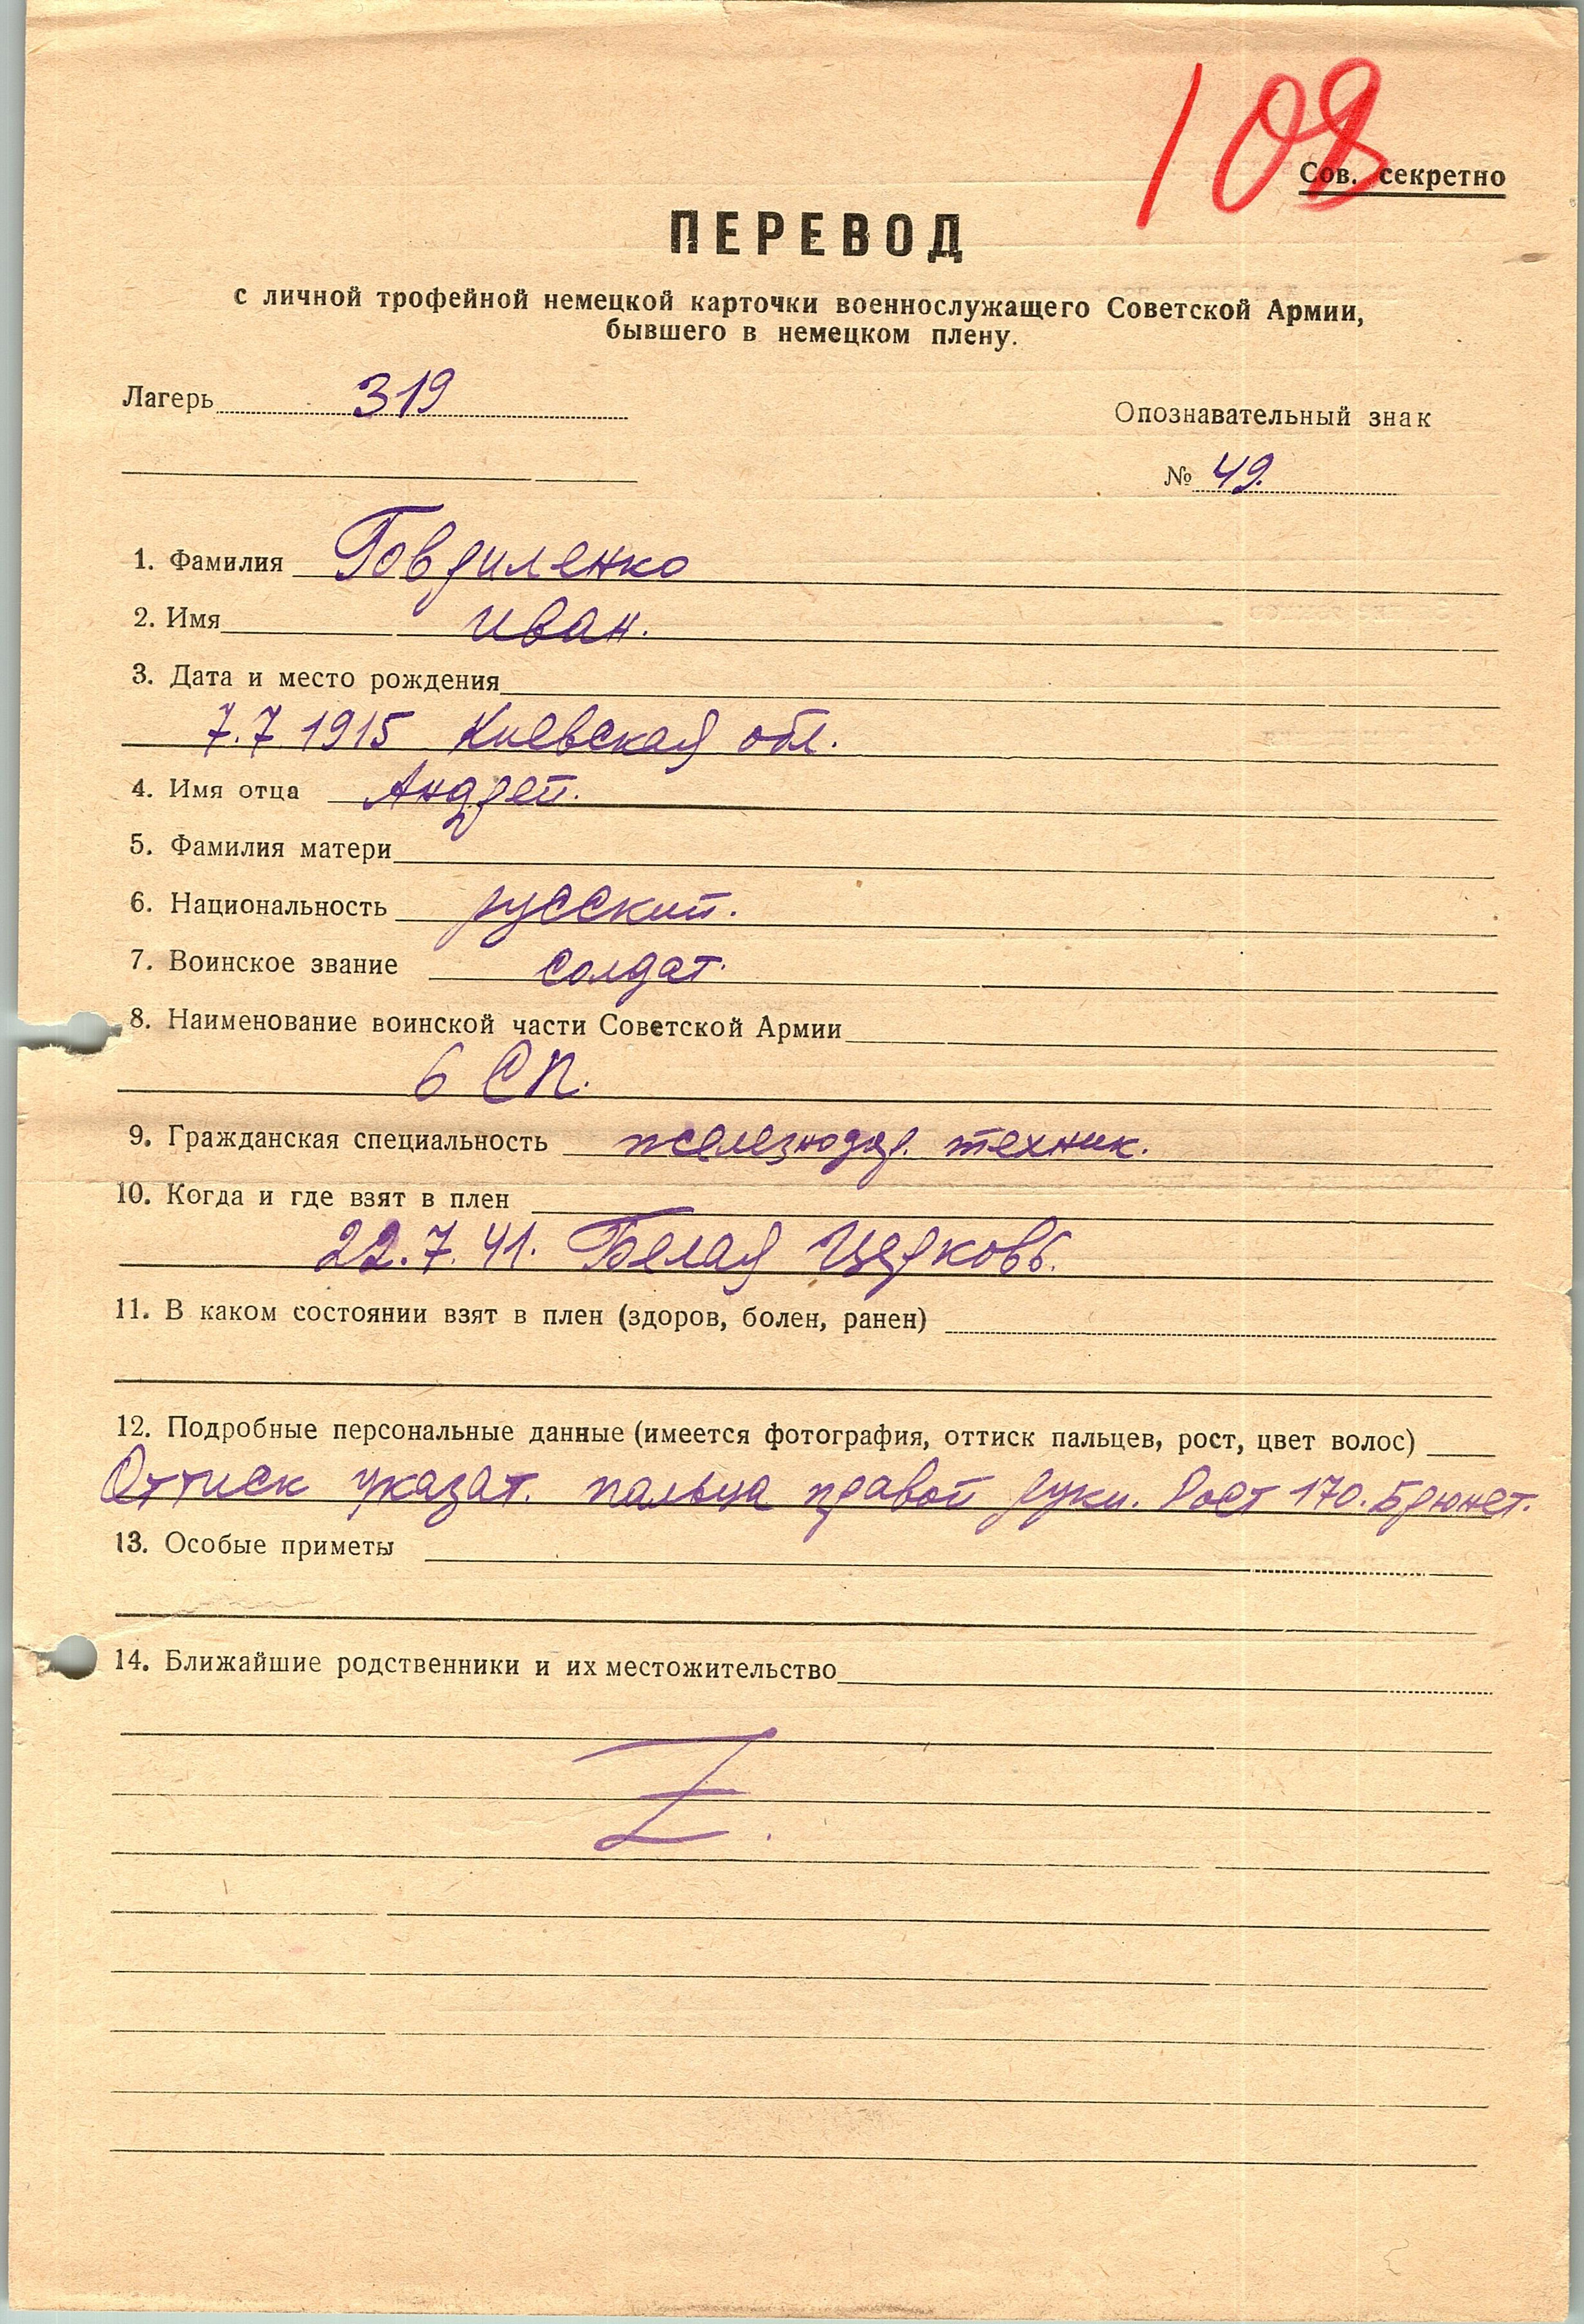 108
Сов. секретно
ПЕРЕВОД
с личной трофейной немецкой карточки военнослужащего Советской Армии,
бывшего в немецком плену.
Лагерь 319
Опознавательный знак
№ 49.
1. Фамилия Говриленко
2. Имя Иван.
3. Дата и место рождения
7.7.1915 Киевская обл.
4. Имя отца Андрей.
5. Фамилия матери
6. Национальность русский.
7. Воинское звание солдат.
8. Наименование воинской части Советской Армии
6 СП.
9. Гражданская специальность железнодор. техник.
10. Когда и где взят в плен
22.7.41. Белая Церковь.
11. В каком состоянии взят в плен (здоров, болен, ранен)
12. Подробные персональные данные (имеется фотография, оттиск пальцев, рост, цвет волос)
Оттиск указат. пальца правой руки. Рост 170. Брюнет.
13. Особые приметы
14. Ближайшие родственники и их местожительство
Z.